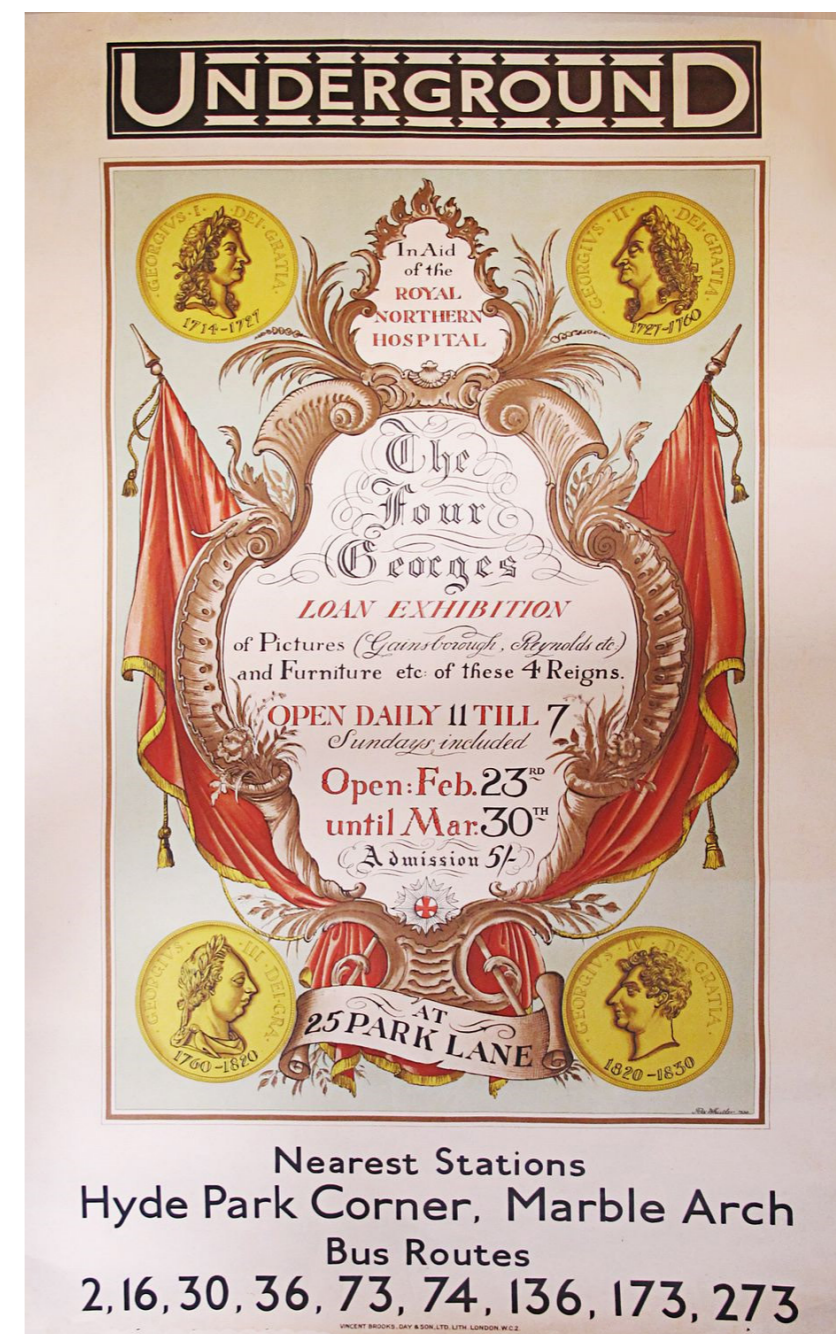 UNDERGROUND
GEORGIVS·I·DEI·GRATIA·
1714-1727
GEORGIVS·II·DEI·GRATIA·
1727-1760
In Aid
of the
ROYAL
NORTHERN
HOSPITAL
The
Four
Georges
LOAN EXHIBITION
of Pictures (Gainsborough, Reynolds etc)
and Furniture etc: of these 4 Reigns.
OPEN DAILY 11 TILL 7
Sundays included
Open: Feb. 23RD
until Mar. 30TH
Admission 5/-
GEORGIVS·III·DEI·GRA·
1760-1820
GEORGIVS·IV·DEI·GRATIA·
1820-1830
AT
25 PARK LANE
Nearest Stations
Hyde Park Corner, Marble Arch
Bus Routes
2, 16, 30, 36, 73, 74, 136, 173, 273
VINCENT BROOKS, DAY & SON, LTD. LITH. LONDON. W.C.2.